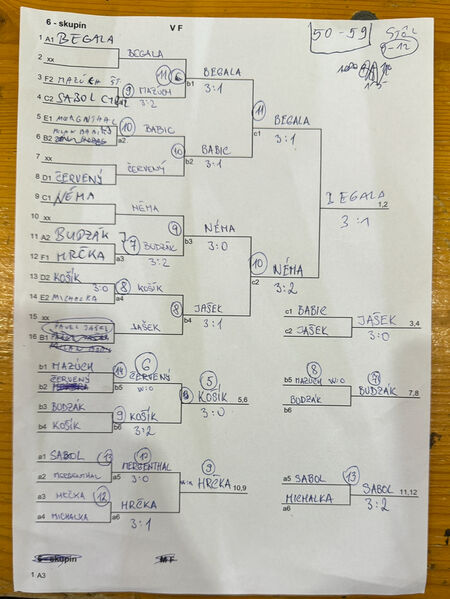 6 - skupin V F
50 - 59
STÔL
9-12
1 A1 BEGALA
BEGALA
2 xx
11
b1 BEGALA
3:1
3 F2 MAZÚCH ŠT
9 MAZUCH
a1 3:2
4 C2 SABOL
11
c1 BEGALA
3:1
5 E1 MERGENTHAL
10 BABIC
a2
6 B2 MILAN BABIC
10
b2 BABIC
3:1
7 xx
ČERVENÝ
8 D1 ČERVENÝ
BEGALA
1,2
3:1
9 C1 NÉMA
NÉMA
10 xx
9
b3 NÉMA
3:0
11 A2 BUDZÁK
7 BUDZÁK
a3 3:2
12 F1 HRČKA
10
c2 NÉMA
3:2
13 D2 KOŠÍK
3:0
8 KOŠÍK
a4
14 E2 MICHALKA
8
b4 JAŠEK
3:1
15 xx
PAVEL JAŠEK
JAŠEK
16 B1
c1 BABIC
c2 JAŠEK
JAŠEK
3,4
3:0
b1 MAZÚCH
b2 ČERVENÝ
14 6 ČERVENÝ
b5 W:O
5
KOŠÍK
5,6
3:0
b3 BUDZÁK
b4 KOŠÍK
9 KOŠÍK
b6 3:2
8
b5 MAZÚCH W:O
BUDZÁK
b6
BUDZÁK
7,8
a1 SABOL
a2 MERGENTHAL
MERGENTHAL
a5 3:0
9
HRČKA
10,9
a3 HRČKA 12
a4 MICHALKA
HRČKA
a6 3:1
a5 SABOL
MICHALKA
a6
13
SABOL
11,12
3:2
6 - skupin M F
1 A3